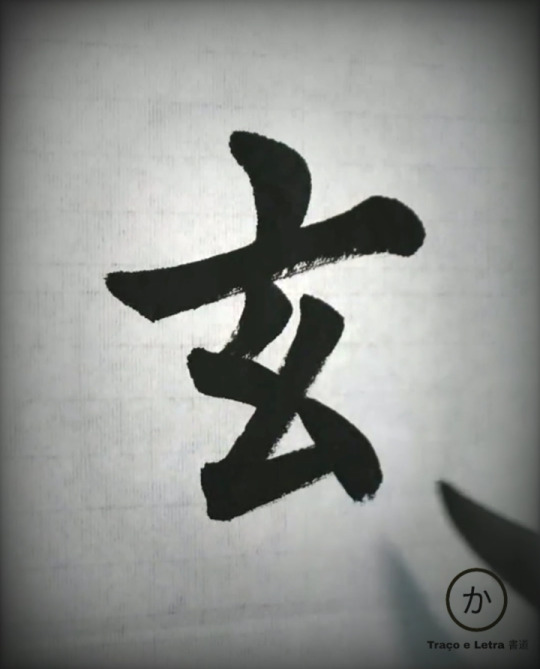 玄
か
Traço e Letra 書道